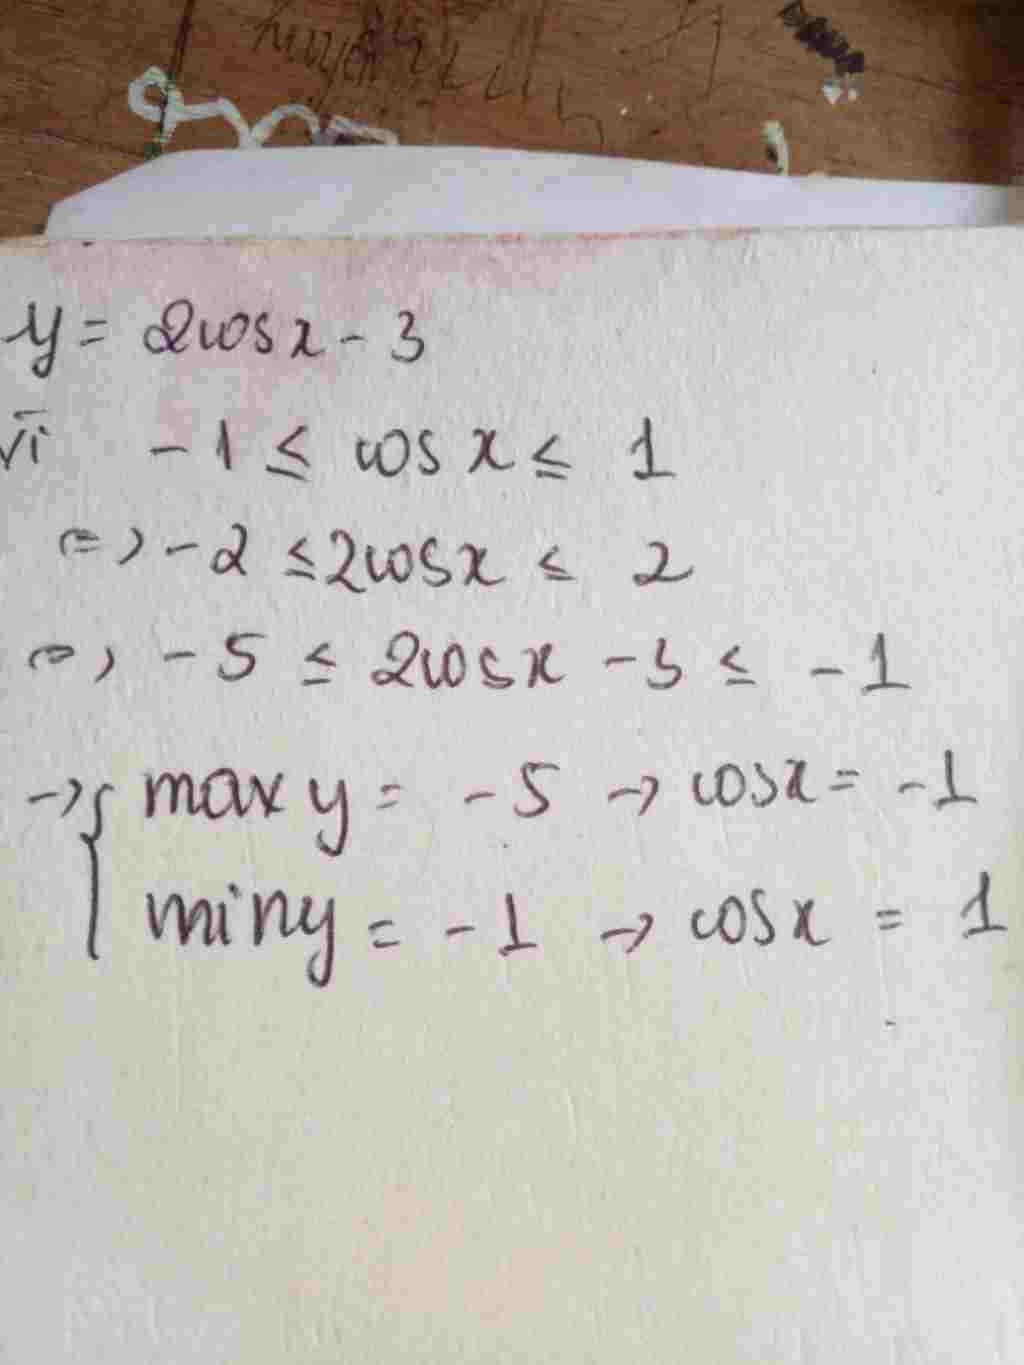 y = 2cosx - 3
Vì -1 ≤ cos x ≤ 1
⇔ -2 ≤ 2cosx ≤ 2
⇔ -5 ≤ 2cosx - 3 ≤ -1
→ { max y = -5 → cosx = -1
miny = -1 → cosx = 1